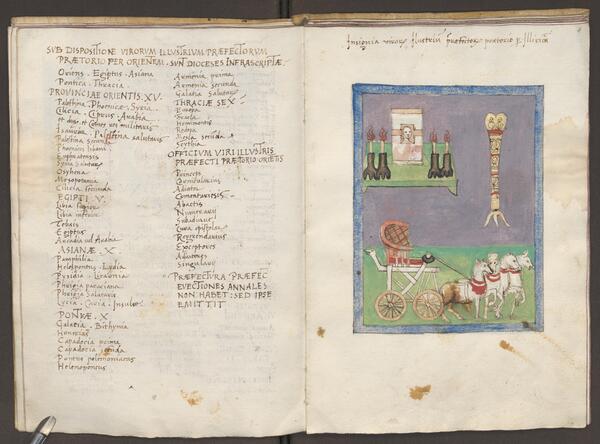 SUB DISPOSITIONE VIRORVM ILLVSTRIVM PRÆFECTORVM
PRÆTORIO PER ORIENTEM. SVNT DIOCESES INFRASCRIPTÆ.
Oriens. Egiptus. Asiana
Pontica. Thracia
PROVINCIAE ORIENTIS. XV.
Palestina. Phoenice. Syria.
Cilicia. Ciprus. Arabia
Isauria. Palestina salutaris
Palestina secunda
Phoenicis libani
Euphratensis
Syria Salutaris
Osrhena
Mesopotamia
Cilicia secunda
EGIPTI V.
Libia superior
Libia inferior
Tebais
Egiptus
Arcadia vel Arabia
ASIANAE. X
Pamphilia
Helespontus. Lydia
Pysidia. Licaonia
Phrigia pacaciana
Phrigia Salutaris
Lycia. Caria. Insulae
PONTICÆ. X
Galatia. Bithynia
Honorias
Capadocia prima
Capadocia secunda
Pontus polemoniacus
Helenopontus
Armenia prima
Armenia secunda
Galatia Salutaris
THRACIÆ SEX
Europa
Hemimontis
Mesia secunda
Scythia
OFFICIVM VIRI ILLVSTRIS
PRÆFECTI PRÆTORIO ORIETIS
Princeps
Cornicularius
Adiutor
Abactis
Numerarii
Subadiuue
Cura epistolar
Regerendarius
Exceptores
Adiutores
Singularii
PRÆFECTVRA PRÆFEC
EVECTIONES ANNALES
NON HABET: SED IPSE
EMITTIT
Insignia viror illustriu prefector pretorio p Illiricu